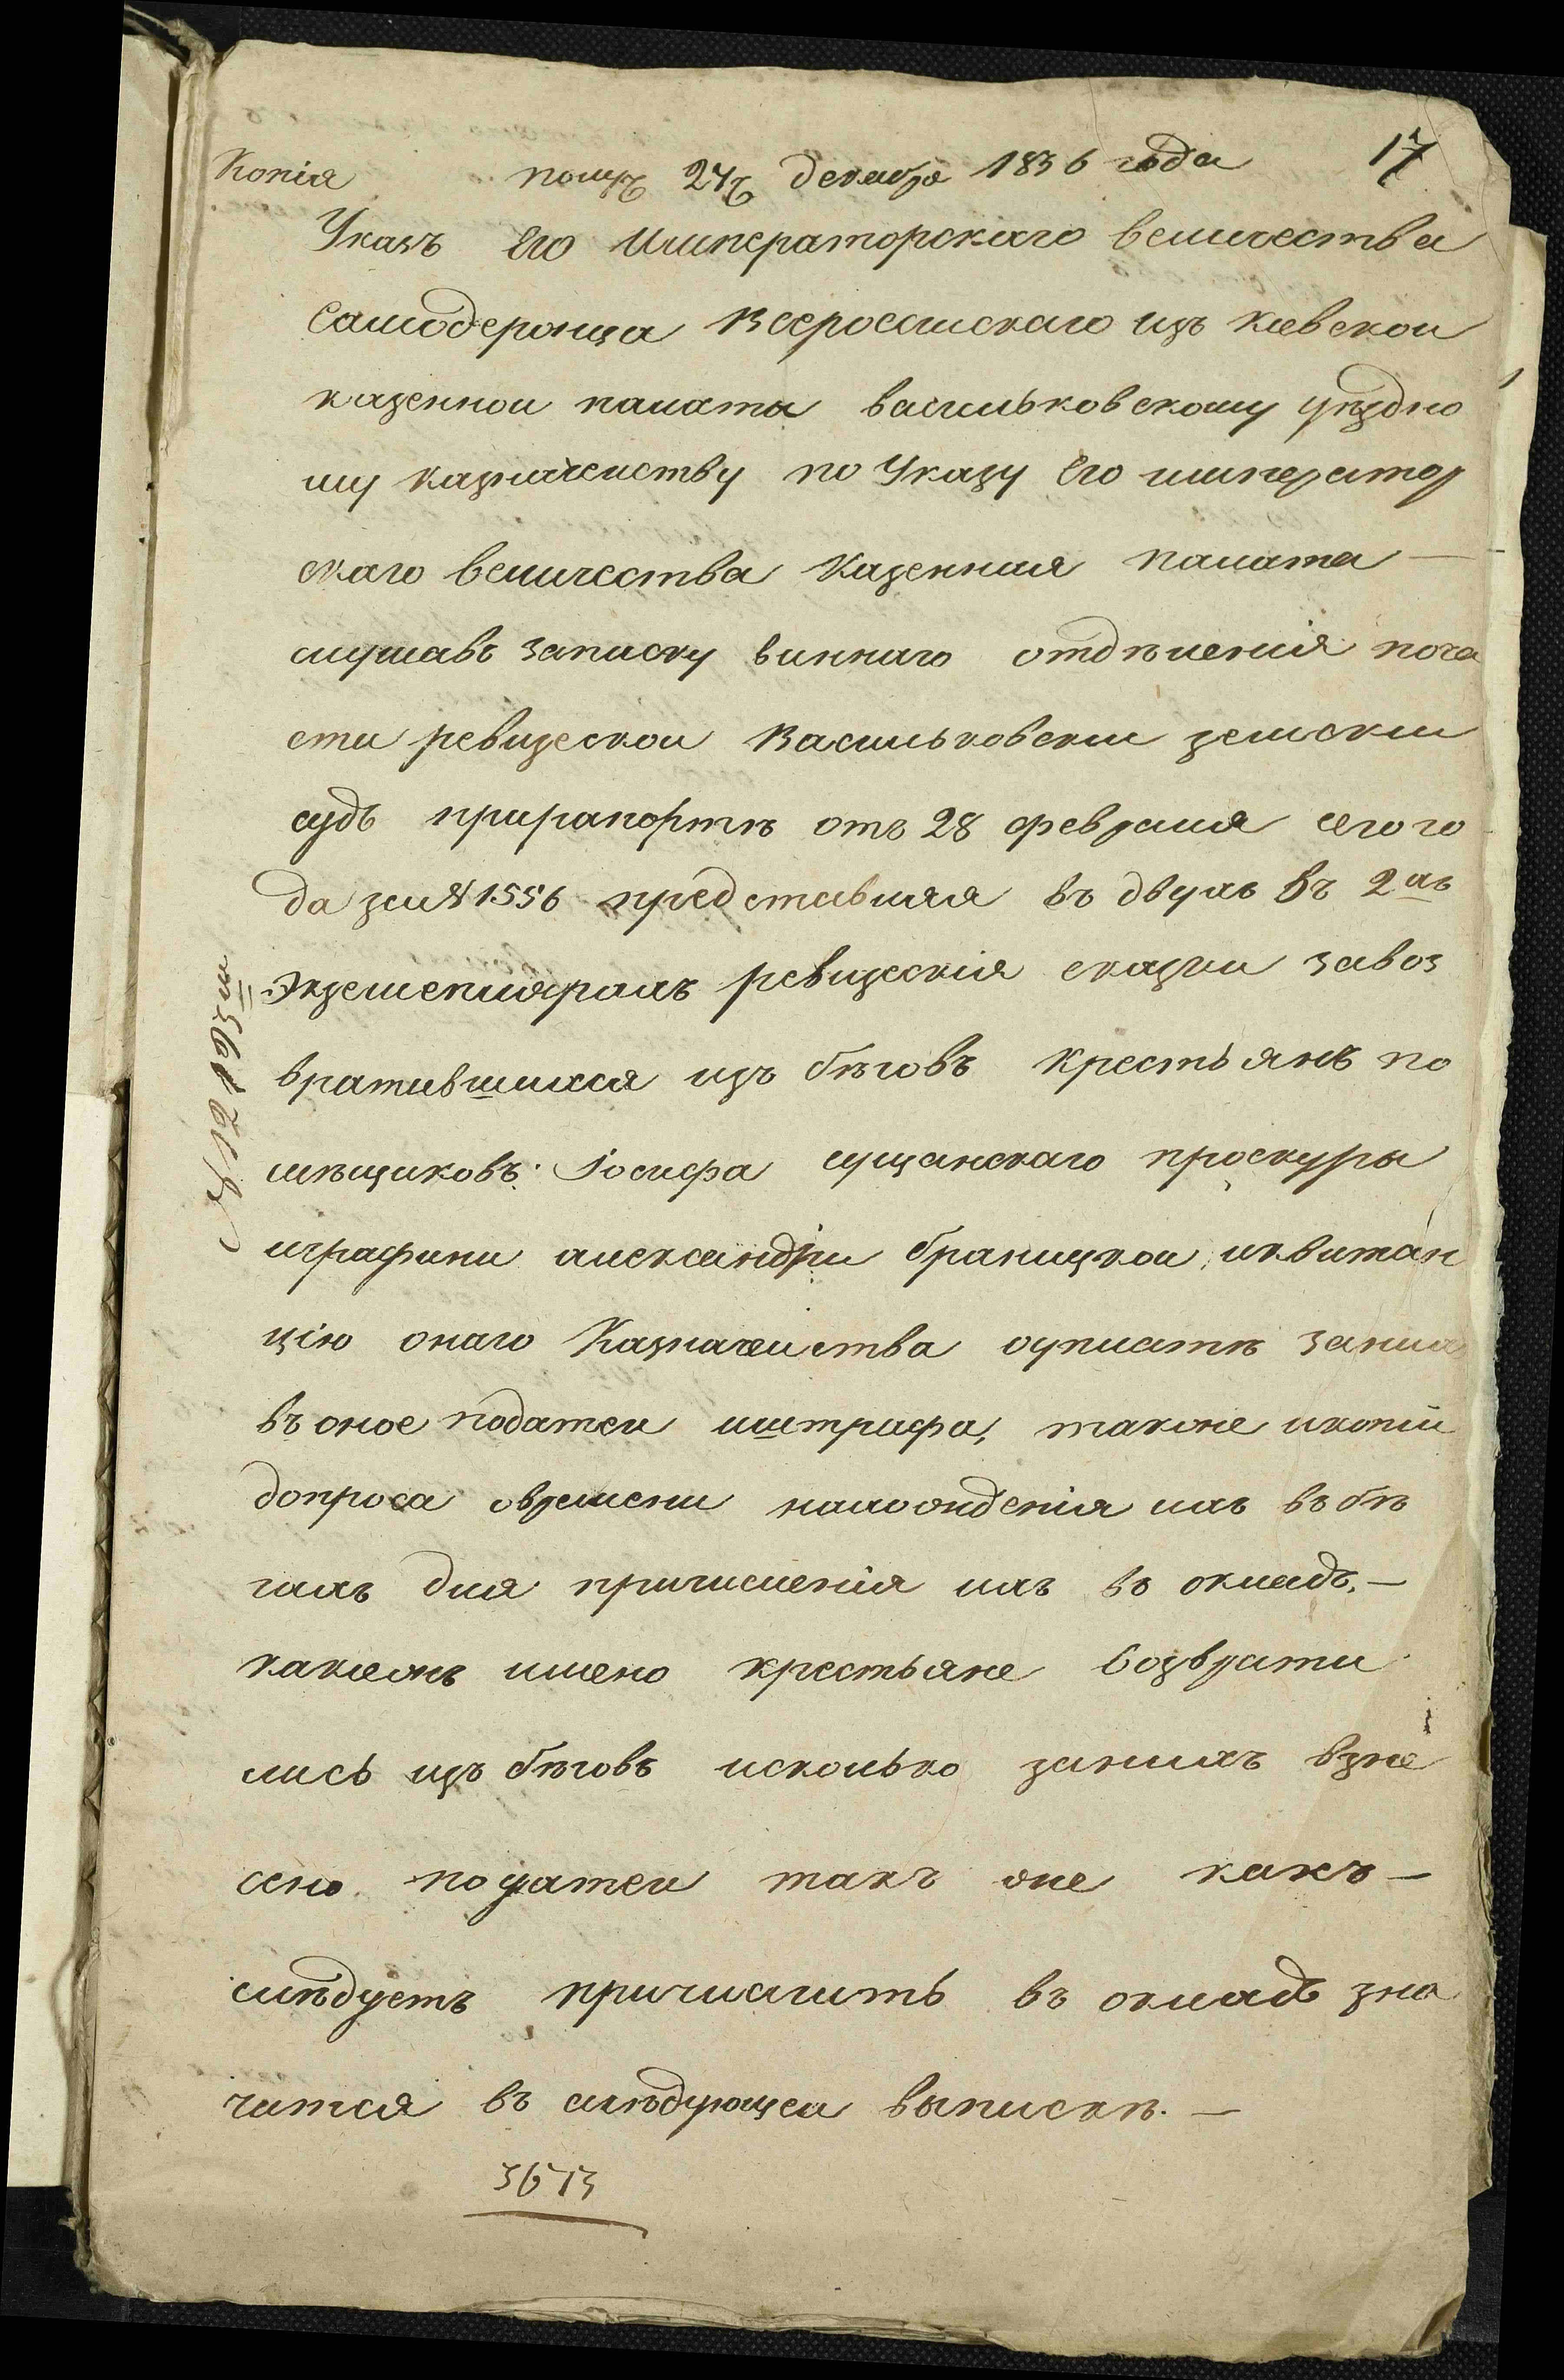 Копія получ 24ъ декабря 1836 года 17
Указъ Его Императорскаго величества
Самодержца Всеросиискаго изъ киевскои
казеннои палаты васильковскому уездно
му казначеиству по Указу Его император
скаго величества Казенная палата —
слушавъ записку виннаго отдѣленія поча
сти ревизскои Васильковскии земскии
судъ прирапортѣ отъ 28 февраля сего го
да за № 1556 представляя въ двухъ въ 2хъ
Экземплярахъ ревизскія сказки завоз
вратившихся изъ бѣговъ крестьянъ по
мѣщиковъ: Іосифа сущанскаго проскуры
играфини александри браницкои, иквитан
цію онаго Казначеиства оуплатѣ заних
въ оное податеи иштрафа, также икопіи
допроса овремени нахождения ихъ въ бѣ
гахъ для причисленія ихъ въ окладъ. —
какиежъ имено крестьяне возврати
лись изъ бѣговъ исколько занихъ взне
сено податеи такъ же какъ —
слѣдуетъ причислить въ окладъ зна
чится въ слѣдующеи выпискѣ. —
3673